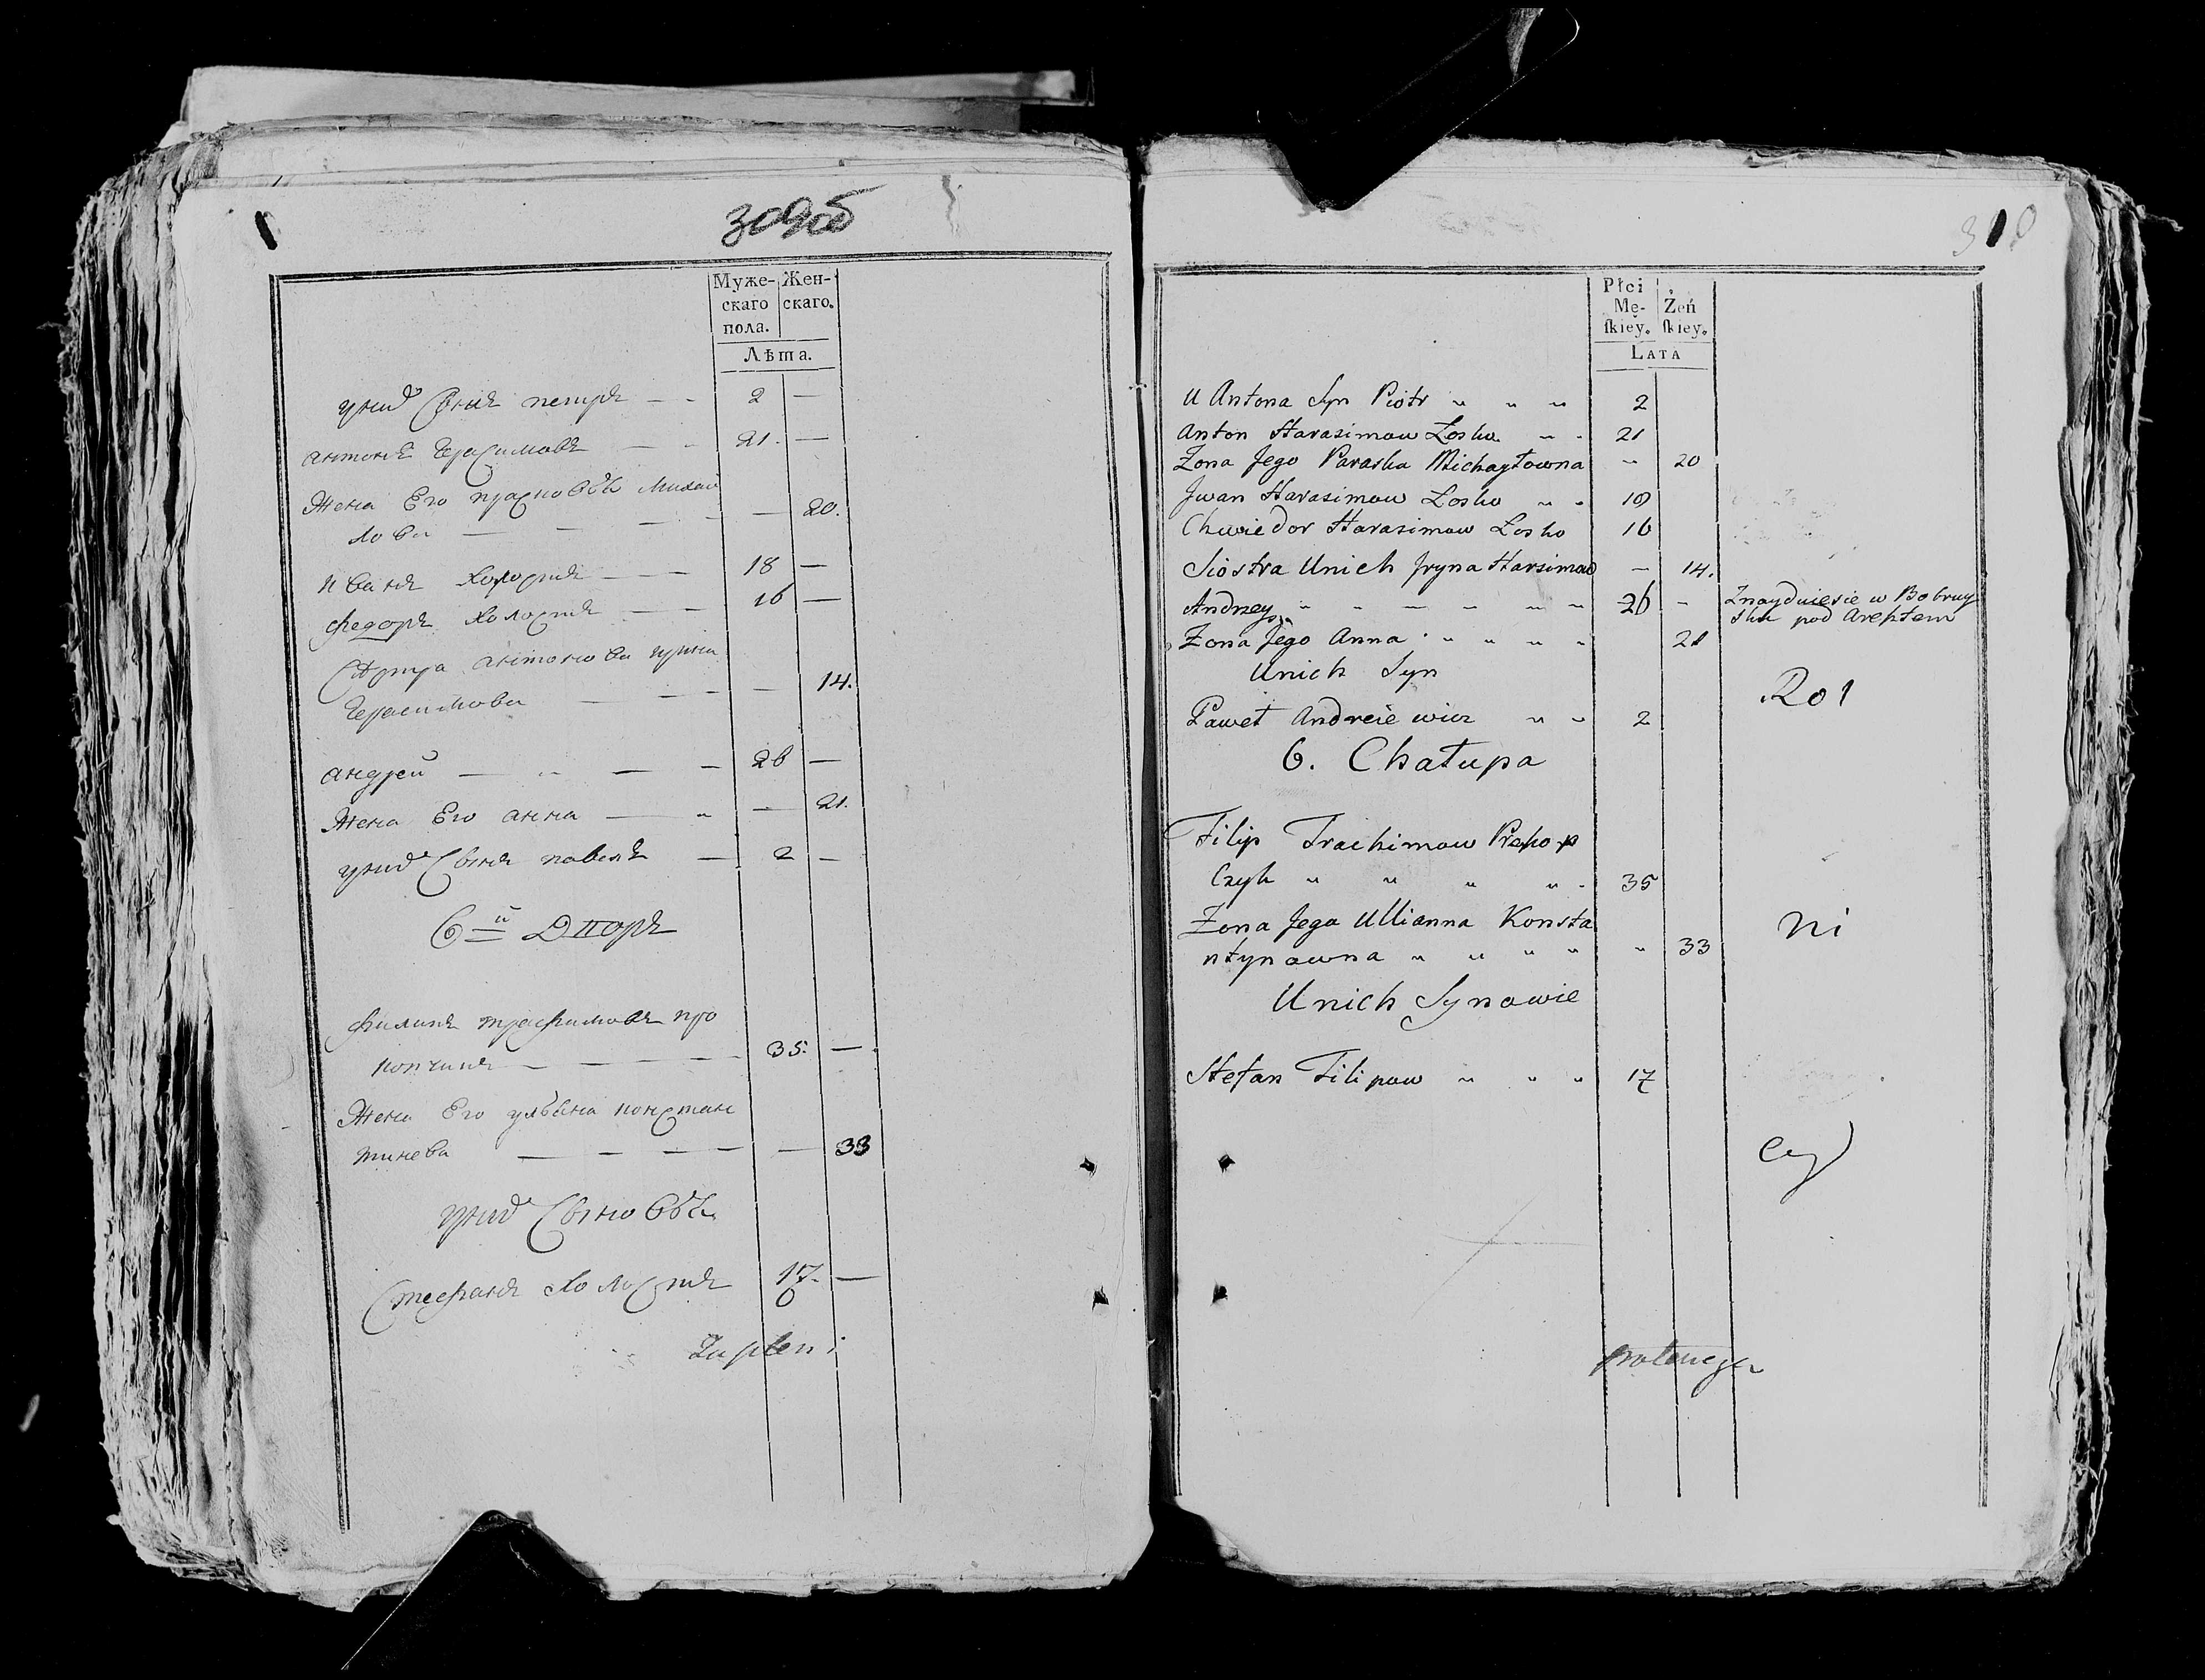 309об
Муже- Жен-
скаго скаго.
пола.
Лѣта.
унихъ сынъ петръ — — 2 —
антонъ Герасимовъ — — 21. —
Жена Его прасковья Михай
лова — — — — — 20.
иванъ холостъ — — 18 —
федоръ холостъ — — 16 —
Сестра антонова ирина
Герасимова — — — — 14.
андрей — „ — — 26 —
Жена Его анна — „ — 21.
унихъ Сынъ павелъ — 2 —
6й Дворъ
филипъ трафимовъ про
копчикъ — — — — 35. —
Жена Его ульяна констан
тинова — — — — — 33
унихъ Сыновья
Стефанъ холостъ 17. —
310
Płci
Mę- Żeń
ſkiey. ſkiey.
LATA
U Antona Syn Piotr „ „ „ 2
Anton Harasimow Łosko „ „ 21
Zona Jego Paraska Michayłowna „ 20
Jwan Harasimow Łosko „ „ 18
Chwiedor Harasimow Łosko 16
Siostra Unich Jryna Harsimow — 14.
Andrzey „ „ — „ „ „ 26 – Znayduiesie w Bobruy
sku pod Aresztem
Zona Jego Anna „ „ „ „ 21
Unich Syn
Paweł Andreiewicz „ „ 2
Rol
6. Chałupa
Filip Trachimow Prokop
Czyk „ „ „ „ 35
Zona Jego Ullianna Konsta
ntynowna „ „ „ „ „ 33
ni
Unich Synowie
Stefan Filipow „ „ „ 17
cy